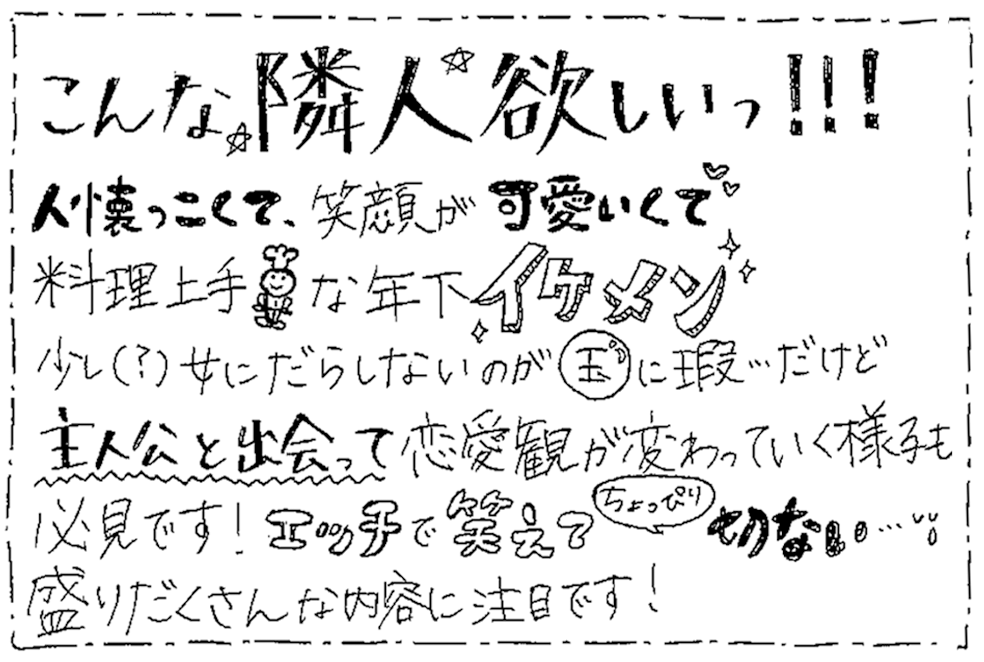 こんな隣人欲しいっ!!!
人懐っこくて、笑顔が可愛いくて
料理上手な年下イケメン
少し(?)女にだらしないのが玉に瑕…だけど
主人公と出会って恋愛観が変わっていく様子も
必見です!エッチで笑えてちょっぴり切ない…
盛りだくさんな内容に注目です!